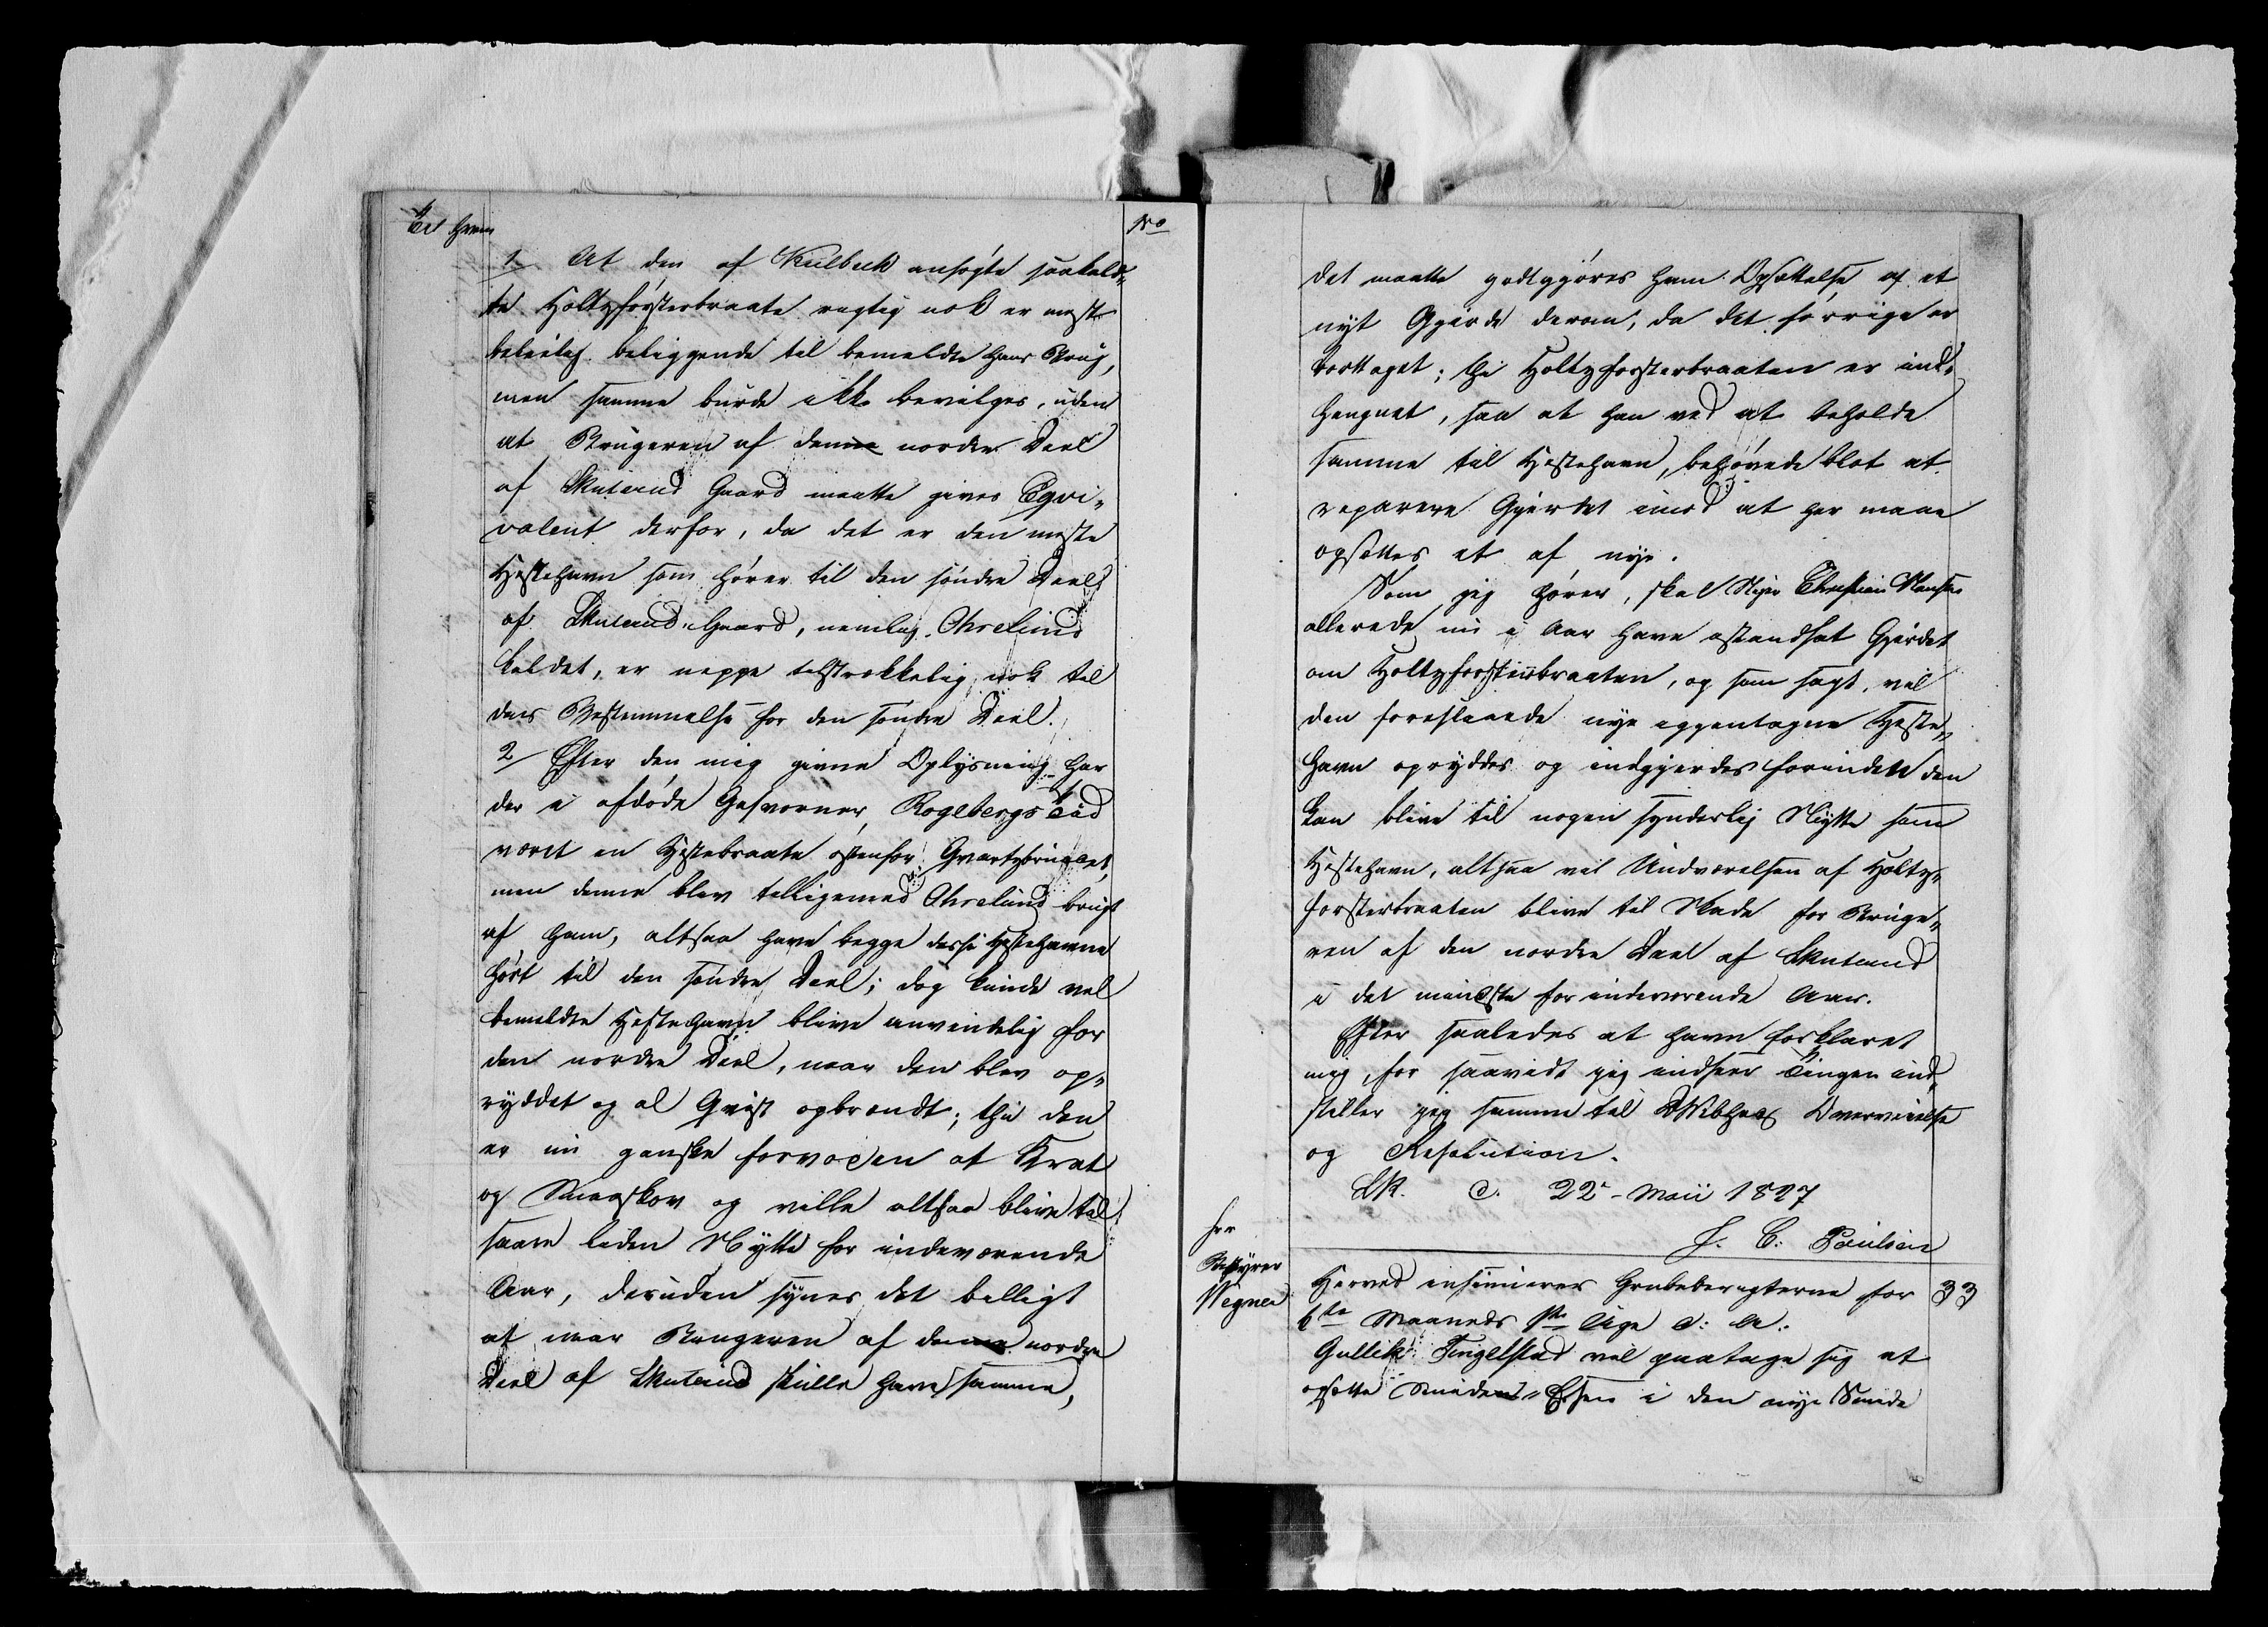 Til hvem
No
1 At den af Kulbeck ansøgte saakald-
te Holtzførsterbraate rigtig nok er mest
beleilig beliggende til bemeldte hans Brug,
men samme burde ikke bevilges, uden
at Brugeren af denne nordre Deel
af Skuterud Gaard maatte gives Eqvi-
valent derfor, da det er den meste
Hestehavn som hører til den søndre Deel
af Skuterud-Gaard, nemlig Ohrelund
kaldet, er neppe tilstrækkelig nok til
dens Bestemmelse for den søndre Deel.
2 Efter den mig givne Oplysning har
der i afdøde Gesvorner Roglebergs Tid
været en Hestebraate østenfor Qvartzbrudet,
men denne blev tilligemed Ohrelund brugt
af ham, altsaa have begge disse Hestehavne
hørt til den søndre Deel; dog kunde vel
bemeldte Hestehavn blive anvendelig for
den nordre Deel, naar den blev op-
ryddet og al Qvist opbrændt; thi den
er nu ganske forvoxen af Krat
og Smaaskov og ville altsaa blive til
saare liden Nytte for indeværende
Aar, desuden synes det billigt
at naar Brugeren af denne nordre
Deel af Skuterud skulle have samme,
det maatte godtgjøres ham Opsættelse af et
nyt Gjærde derom, da det forrige er
borttaget; thi Holtzforsterbraaten er ind-
hengnet, saa at han ved at beholde
samme til Hestehavn, behøvede blot at
reparere Gjerdet imod at her maae
opsættes et af nye.
Som jeg hører, skal Christian Hansen
allerede nu i Aar have istandsat Gjerdet
om Holtzforsterbraaten, og som sagt, vil
den foreslaaede nye igjentagne Heste-
havn opryddes og indgjerdes forinden den
kan blive til nogen synderlig Nytte som
Hestehavn, altsaa vil Undværelsen af Holtz-
forsterbraaten blive til Skade for Bruge-
ren af den nordre Deel af Skuterud
i det mindste for indeværende Aar.
Efter saaledes at have forklaret
mig, for saavidt jeg indseer Tingen ind-
stiller jeg samme til Overveielse
og Resolution.
Sk. d. 22 Maii 1827
J. C. Poulsen
Hr
Bestyrer
Wegner
Herved insinueres Grubeberegterne for 33
6te Maaneds 1ste Uge d: A:
Gullik Tingelstad vil paatage sig at
opsætte Smidens Essen i den nye Smide